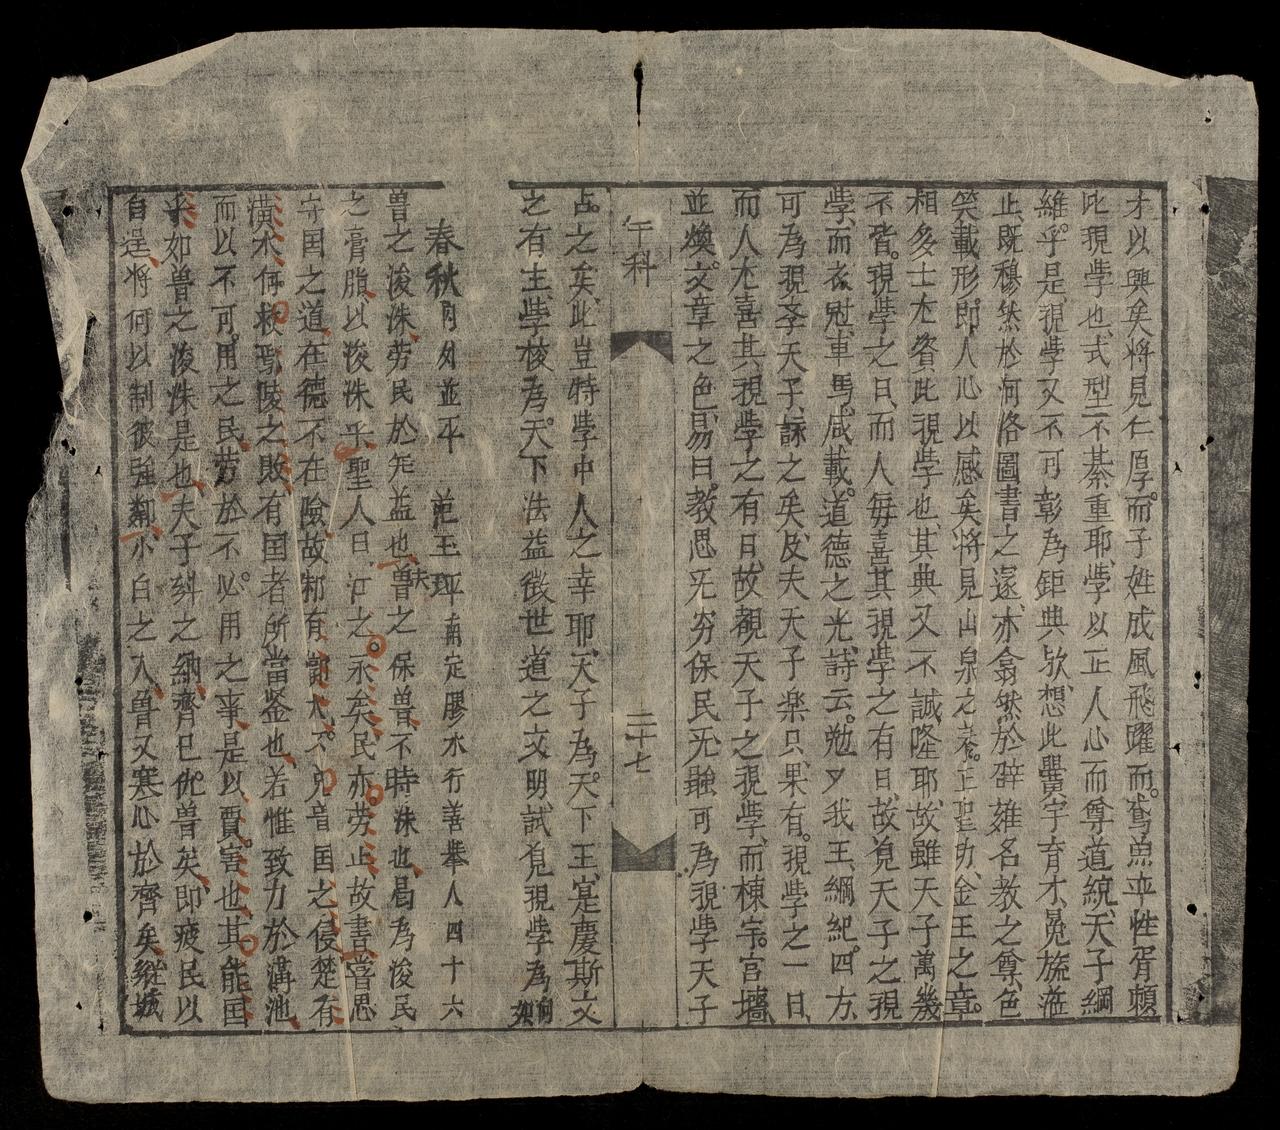 才以興矣將見仁厚而子姓成風飛躍而鳶魚率性胥賴
此視學也式型不綦重耶學以正人心而尊道統天子綱
維乎是視學又不可彰為鉅典欤想此黌宇育才冕旒涖
止既穆然於河洛圖書之邃亦翕然於辟雍名教之尊色
笑載形即人心以感矣將見山泉之養正聖功金玉之章
相多士尤資此視學也其典又不誠隆耶故雖天子萬幾
不暇視學之日而人每喜其視學之有日故覓天子之視
學而衣冠車馬咸載道德之光詩云勉又我王綱紀四方
可為視孝天子詠之矣及夫天子楽只果有視學之一日
而人尤喜其視學之有日故觀天子之視學而棟宇宮墻
並煥文章之色易曰教思无穷保民无疆可為視學天子
午科
二十七
占之矣此豈特學中人之幸耶天子為天下王寔慶斯文
之有主學校為天下法益徵世道之文明試覓視學為何如
春秋 同外並平 范玉珽 平南定膠水行善舉人四十六
魯之浚洙劳民於无益也夫魯之保魯不時洙也曷為浚民
之膏脂以浚洙乎聖人曰 之 矣民亦劳止故書嘗思
守囯之道在德不在險故邾有 囯之侵楚有
潢水何救焉陵之敗有囯者所當鉴也若惟致力於溝池
而以不可用之民劳於不必用之事是以賈害也其能囯
乎如魯之浚洙是也夫子糾之納齊已仇魯矣即疲民以
自逞將何以制彼强 小白之入魯又寒心於齊矣縱城